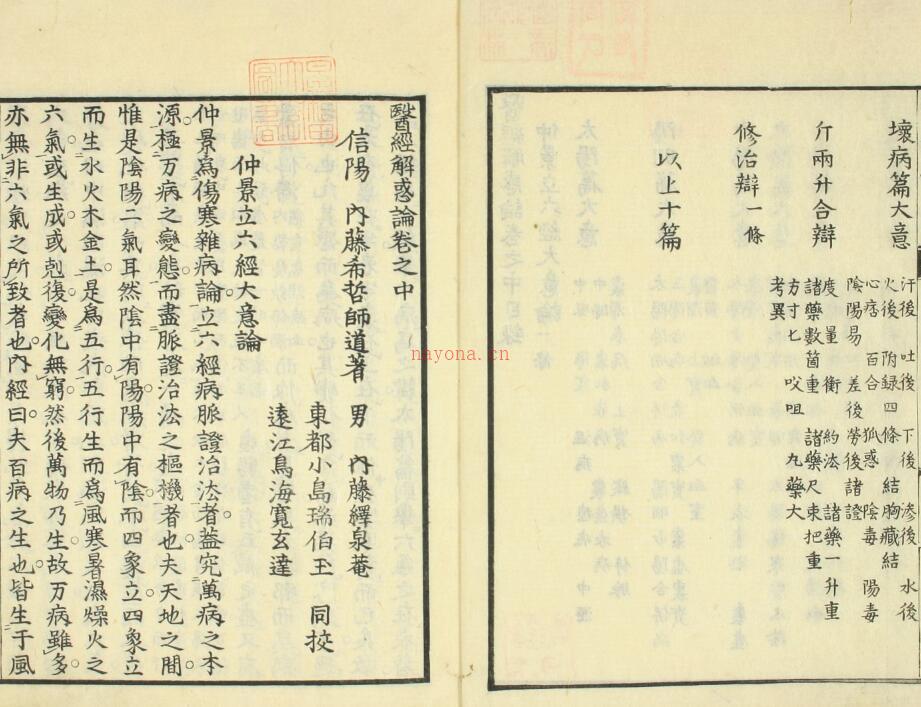 壞病篇大意
汗後 吐後 下後 滲後 水後
火後 附録四條 結胸藏結
心痞 百合 狐惑 陰毒 陽毒
陰陽易 差後勞後諸證
斤兩升合辯
度 量 衡 約法 諸藥一升重
諸藥數箇重 諸藥尺束把重
方寸匕 㕮咀 丸藥大
考異
修治辯一條
以上十篇
醫經解惑論卷之中
信陽 內藤希哲師道著 男 內藤繹泉菴
東都小島瑞伯玉 同挍
遠江鳥海寬玄達
仲景立六經大意論
仲景為傷寒雜病論立六經病脈證治法者。葢究萬病之本
源極万病之變態而盡脈證治法之樞機者也夫天地之間
惟是陰陽二氣耳然陰中有陽陽中有陰而四象立四象立
而生水火木金土是為五行五行生而為風寒暑濕燥火之
六氣或生成或剋復變化無窮然後萬物乃生故万病雖多
亦無非六氣之所致者也內經曰夫百病之生也皆生于風
nayona.cn